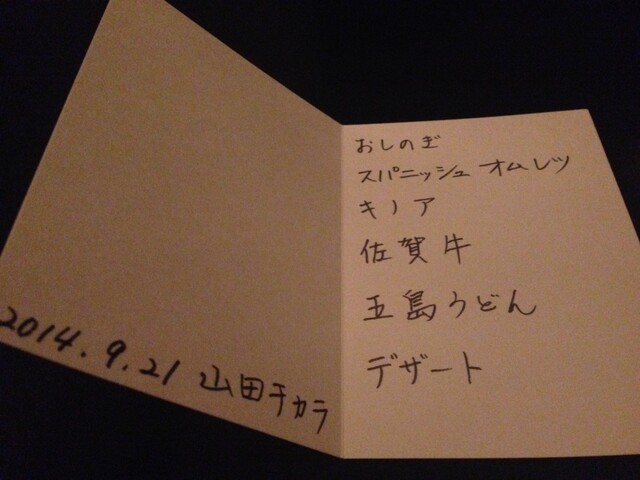 おしのぎ
スパニッシュ オムレツ
キノア
佐賀牛
五島うどん
デザート
2014.9.21 山田チカラ